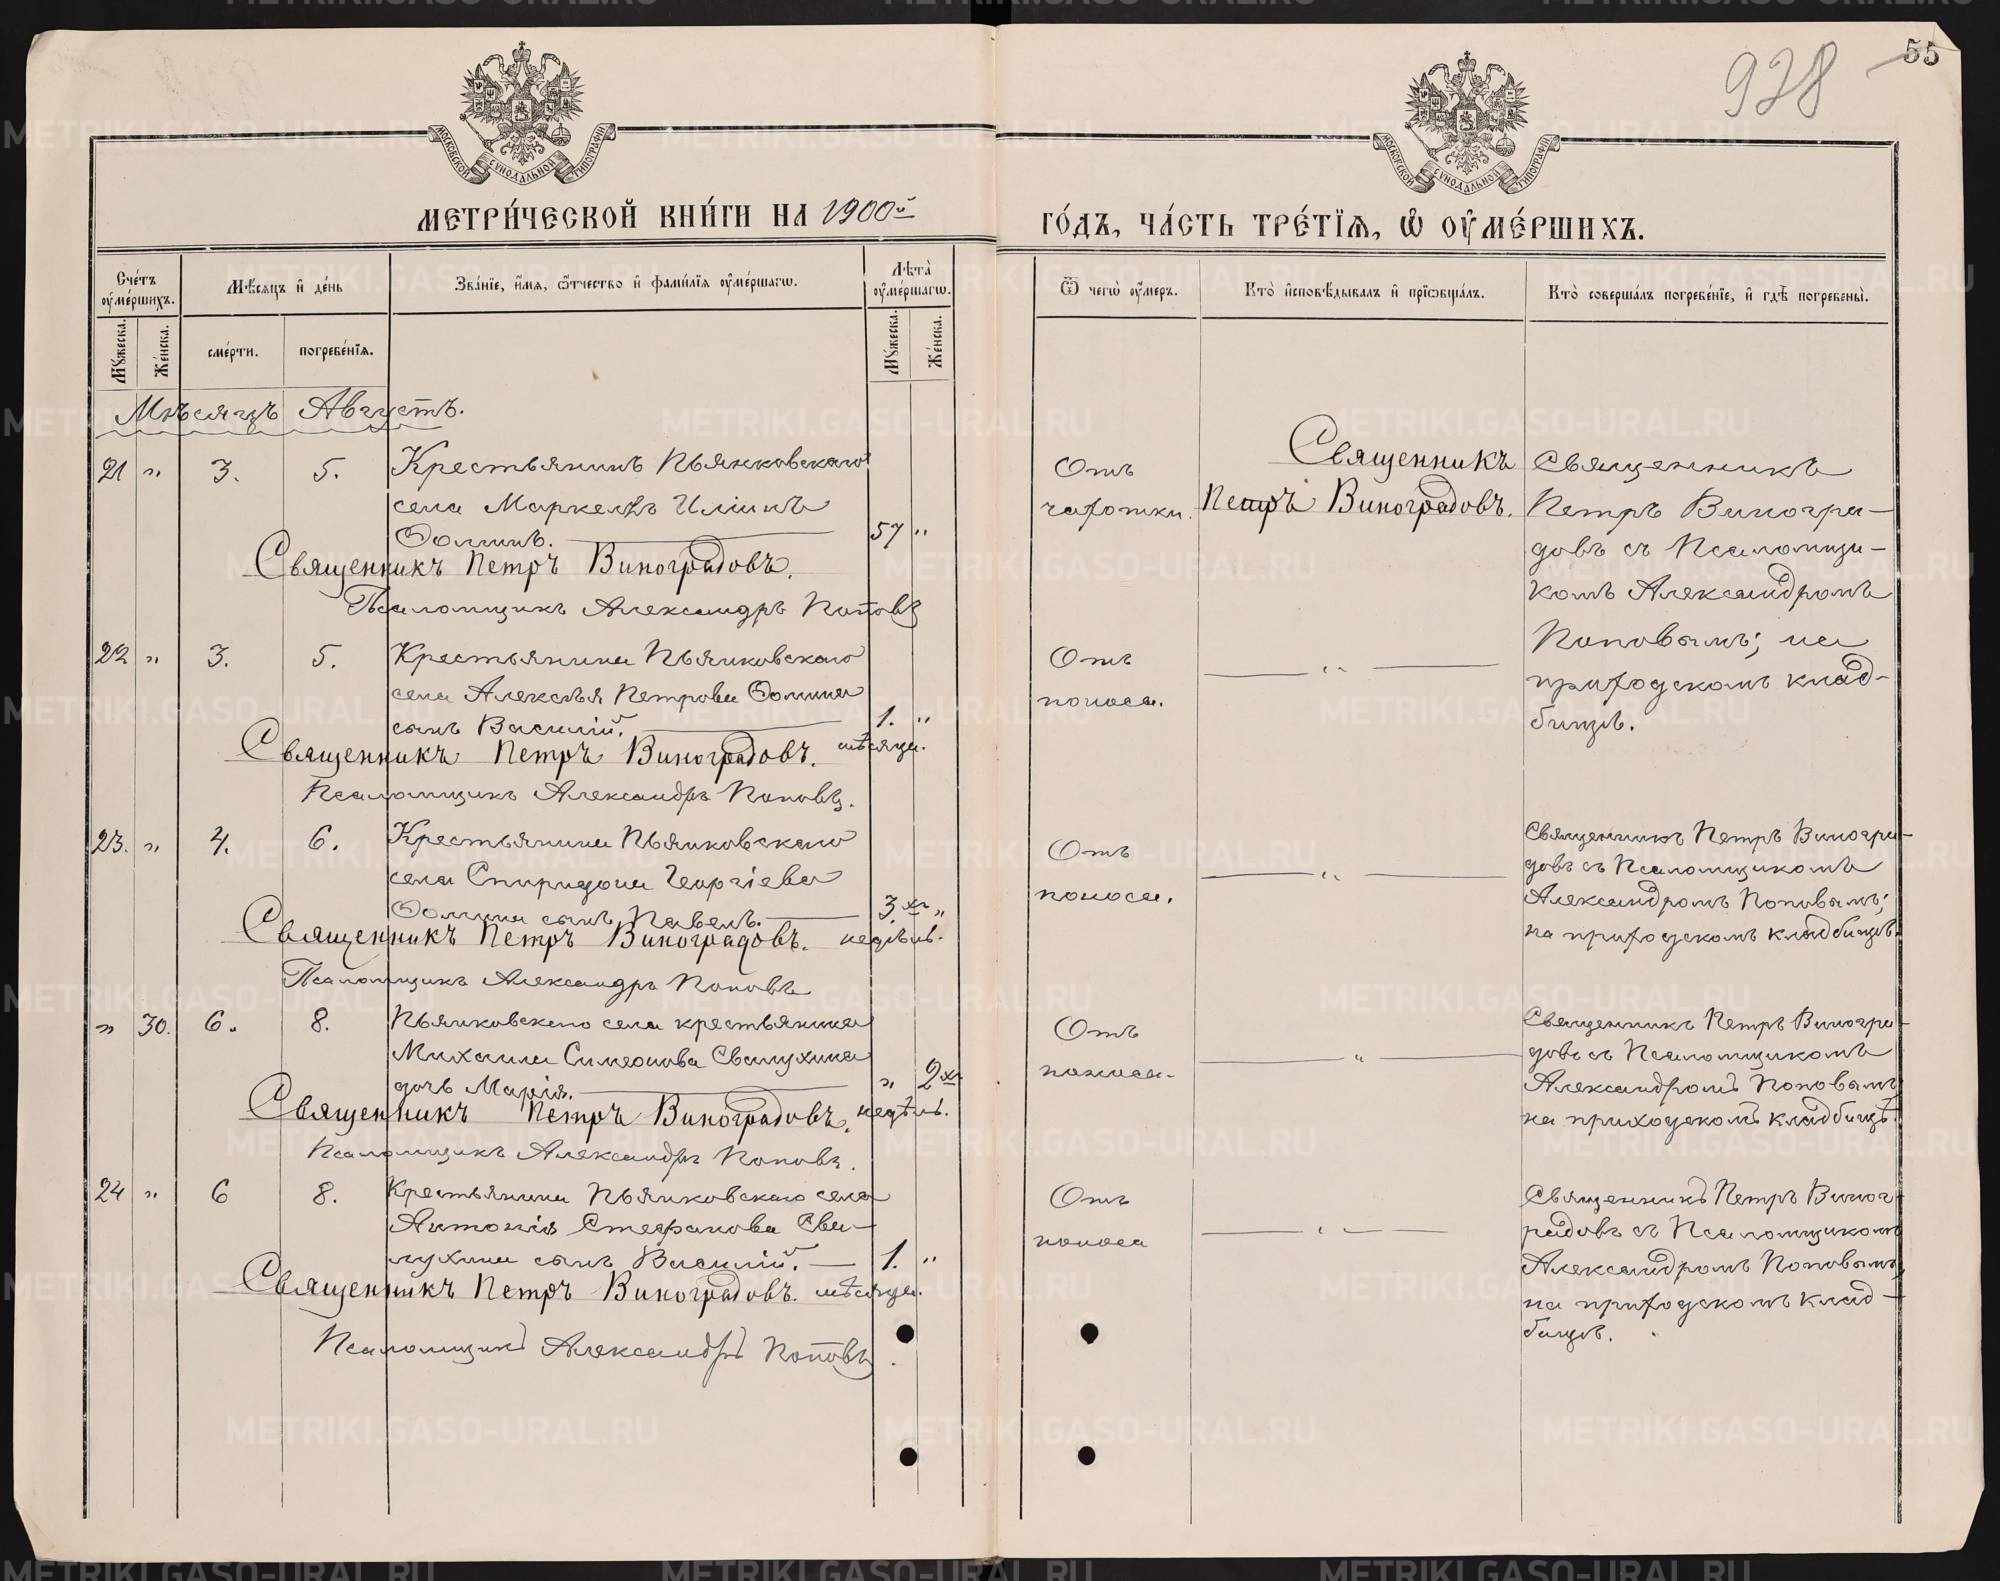 55
928
МОСКОВСКОЙ СУНОДАЛЬНОЙ ТИПОГРАФІИ
МОСКОВСКОЙ СУНОДАЛЬНОЙ ТИПОГРАФІИ
МЕТРИ́ЧЕСКОЙ КНИ́ГИ НА 1900й
ГО́ДЪ, ЧА́СТЬ ТРЕ́ТІѦ, Ѽ ОУ҆МЕ́РШИХЪ.
Сче́тъ оу҆ме́ршихъ.
Мꙋ́жеска.
Же́нска.
Мѣ́сяцъ и҆ де́нь
сме́рти.
погребе́нїѧ.
Зва́нїе, и҆́мѧ, ѻ҆́тчество и҆ фами́лїѧ оу҆ме́ршагѡ.
Лѣ́та оу҆ме́ршагѡ.
Мꙋ́жеска.
Же́нска.
Ѿ чегѡ̀ оу҆́меръ.
Кто̀ и҆сповѣ́дывалъ и҆ прїѡбща́лъ.
Кто̀ соверша́лъ погребе́нїе, и҆ гдѣ̀ погребены̀.
Мѣсяцъ Августъ.
21 " 3. 5. Крестьянинъ Пьянковскаго
села Маркеллъ Илiинъ
Ѳоминъ. 57 "
Священникъ Петръ Виноградовъ.
Псаломщикъ Александръ Поповъ
Отъ
чахотки.
Священникъ
Петръ Виноградовъ.
Священникъ
Петръ Виногра-
довъ съ Псаломщи-
комъ Александромъ
Поповымъ; на
приходскомъ клад-
бищѣ.
22 " 3. 5. Крестьянина Пьянковскаго
села Алексѣя Петрова Ѳомина
сынъ Василій. 1. "
мѣсяца.
Священникъ Петръ Виноградовъ.
Псаломщикъ Александръ Поповъ.
Отъ
поноса.
"
23. " 4. 6. Крестьянина Пьянковскаго
села Спиридона Георгіева
Ѳомина сынъ Павелъ. 3.хъ "
недѣль.
Священникъ Петръ Виноградовъ.
Псаломщикъ Александръ Поповъ
Отъ
поноса.
"
Священникъ Петръ Виногра-
довъ съ Псаломщикомъ
Александромъ Поповымъ;
на приходскомъ кладбищѣ.
" 30. 6. 8. Пьянковскаго села крестьянина
Михаила Симеонова Свалухина
дочь Марія. " 2хъ
недѣль.
Священникъ Петръ Виноградовъ.
Псаломщикъ Александръ Поповъ.
Отъ
поноса.
"
Священникъ Петръ Виногра-
довъ съ Псаломщикомъ
Александромъ Поповымъ
на приходскомъ кладбищѣ.
24 " 6 8. Крестьянина Пьянковскаго села
Антонія Стефанова Сва-
лухина сынъ Василій. 1. "
мѣсяца.
Священникъ Петръ Виноградовъ.
Псаломщикъ Александръ Поповъ.
Отъ
поноса
"
Священникъ Петръ Виног-
радовъ съ Псаломщикомъ
Александромъ Поповымъ,
на приходскомъ клад-
бищѣ.
METRIKI.GASO-URAL.RU